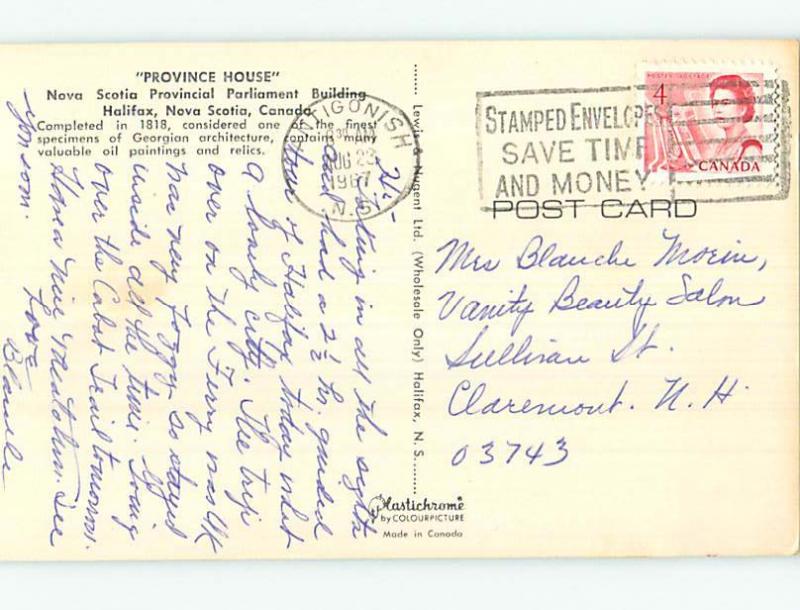 "PROVINCE HOUSE"
Nova Scotia Provincial Parliament Building
Halifax, Nova Scotia, Canada
Completed in 1818, considered one of the finest
specimens of Georgian architecture, contains many
valuable oil paintings and relics.
Hi-
Taking in all the sights
and had a 2½ hr. guided
tour of Halifax today what
a lovely city. The trip
over on the Ferry was OK
has very foggy so stayed
inside all the time. Going
over the Cabot Trail tomorrow.
Have a nine See
you soon.
Love
Blanche
Lewis & Nugent Ltd. (Wholesale Only) Halifax, N. S.
Plastichrome
by COLOURPICTURE
Made in Canada
ANTIGONISH
23
1967
N.S.
STAMPED ENVELOPES
SAVE TIME
AND MONEY
POSTES POSTAGE
4
CANADA
POST CARD
Mrs Blanche Morin,
Vanity Beauty Salon
Sullivan St.
Claremont. N. H.
03743